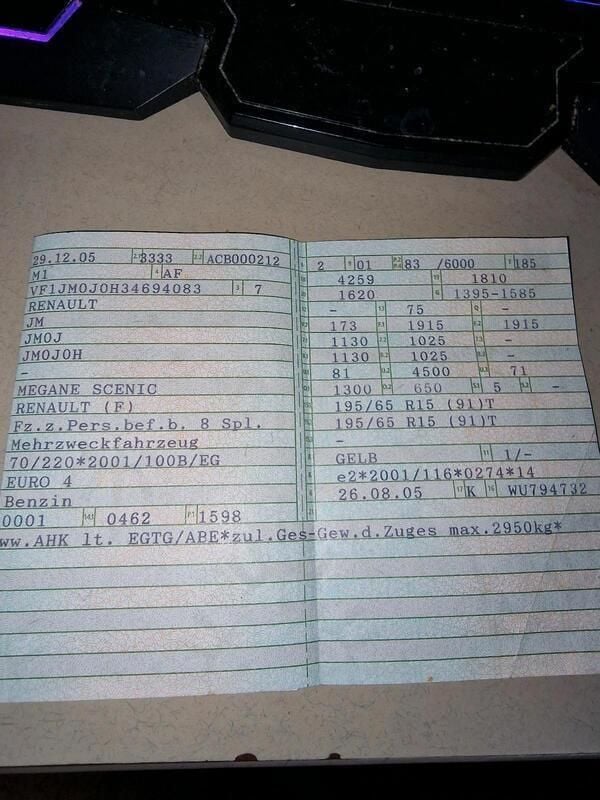 29.12.05 3333 ACB000212
M1 AF
VF1JM0J0H34694083 7
RENAULT
JM
JM0J
JM0J0H
-
MEGANE SCENIC
RENAULT (F)
Fz.z.Pers.bef.b. 8 Spl.
Mehrzweckfahrzeug
70/220*2001/100B/EG
EURO 4
Benzin
0001 0462 1598
2 01 83 /6000 185
4259 1810
1620 1395-1585
- 75 -
173 1915 1915
1130 1025 -
1130 1025 -
81 4500 71
1300 650 5 -
195/65 R15 (91)T
195/65 R15 (91)T
-
GELB 1/-
e2*2001/116*0274*14
26.08.05 K WU794732
ww.AHK lt. EGTG/ABE*zul.Ges-Gew.d.Zuges max.2950kg*